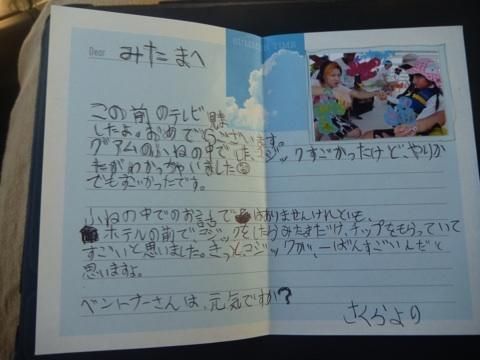 Dear みたまへ
SUMMER TIME
この前のテレビ見ま
したよ。おめでとうございます。
グアムのふねの中でした、コジックすごかったけど、やりか
たがわかっちゃいました
でもすごかったです。
ふねの中でのお話で はかりませんけれども、
ホテルの前でコジックを(したら)みたまだけ、チップをもらっていて
すごいと思いました。きっと、コジックが、一ばんすごいんだと
思いますよ。
ベントナーさんは、元気ですか?
さくらより